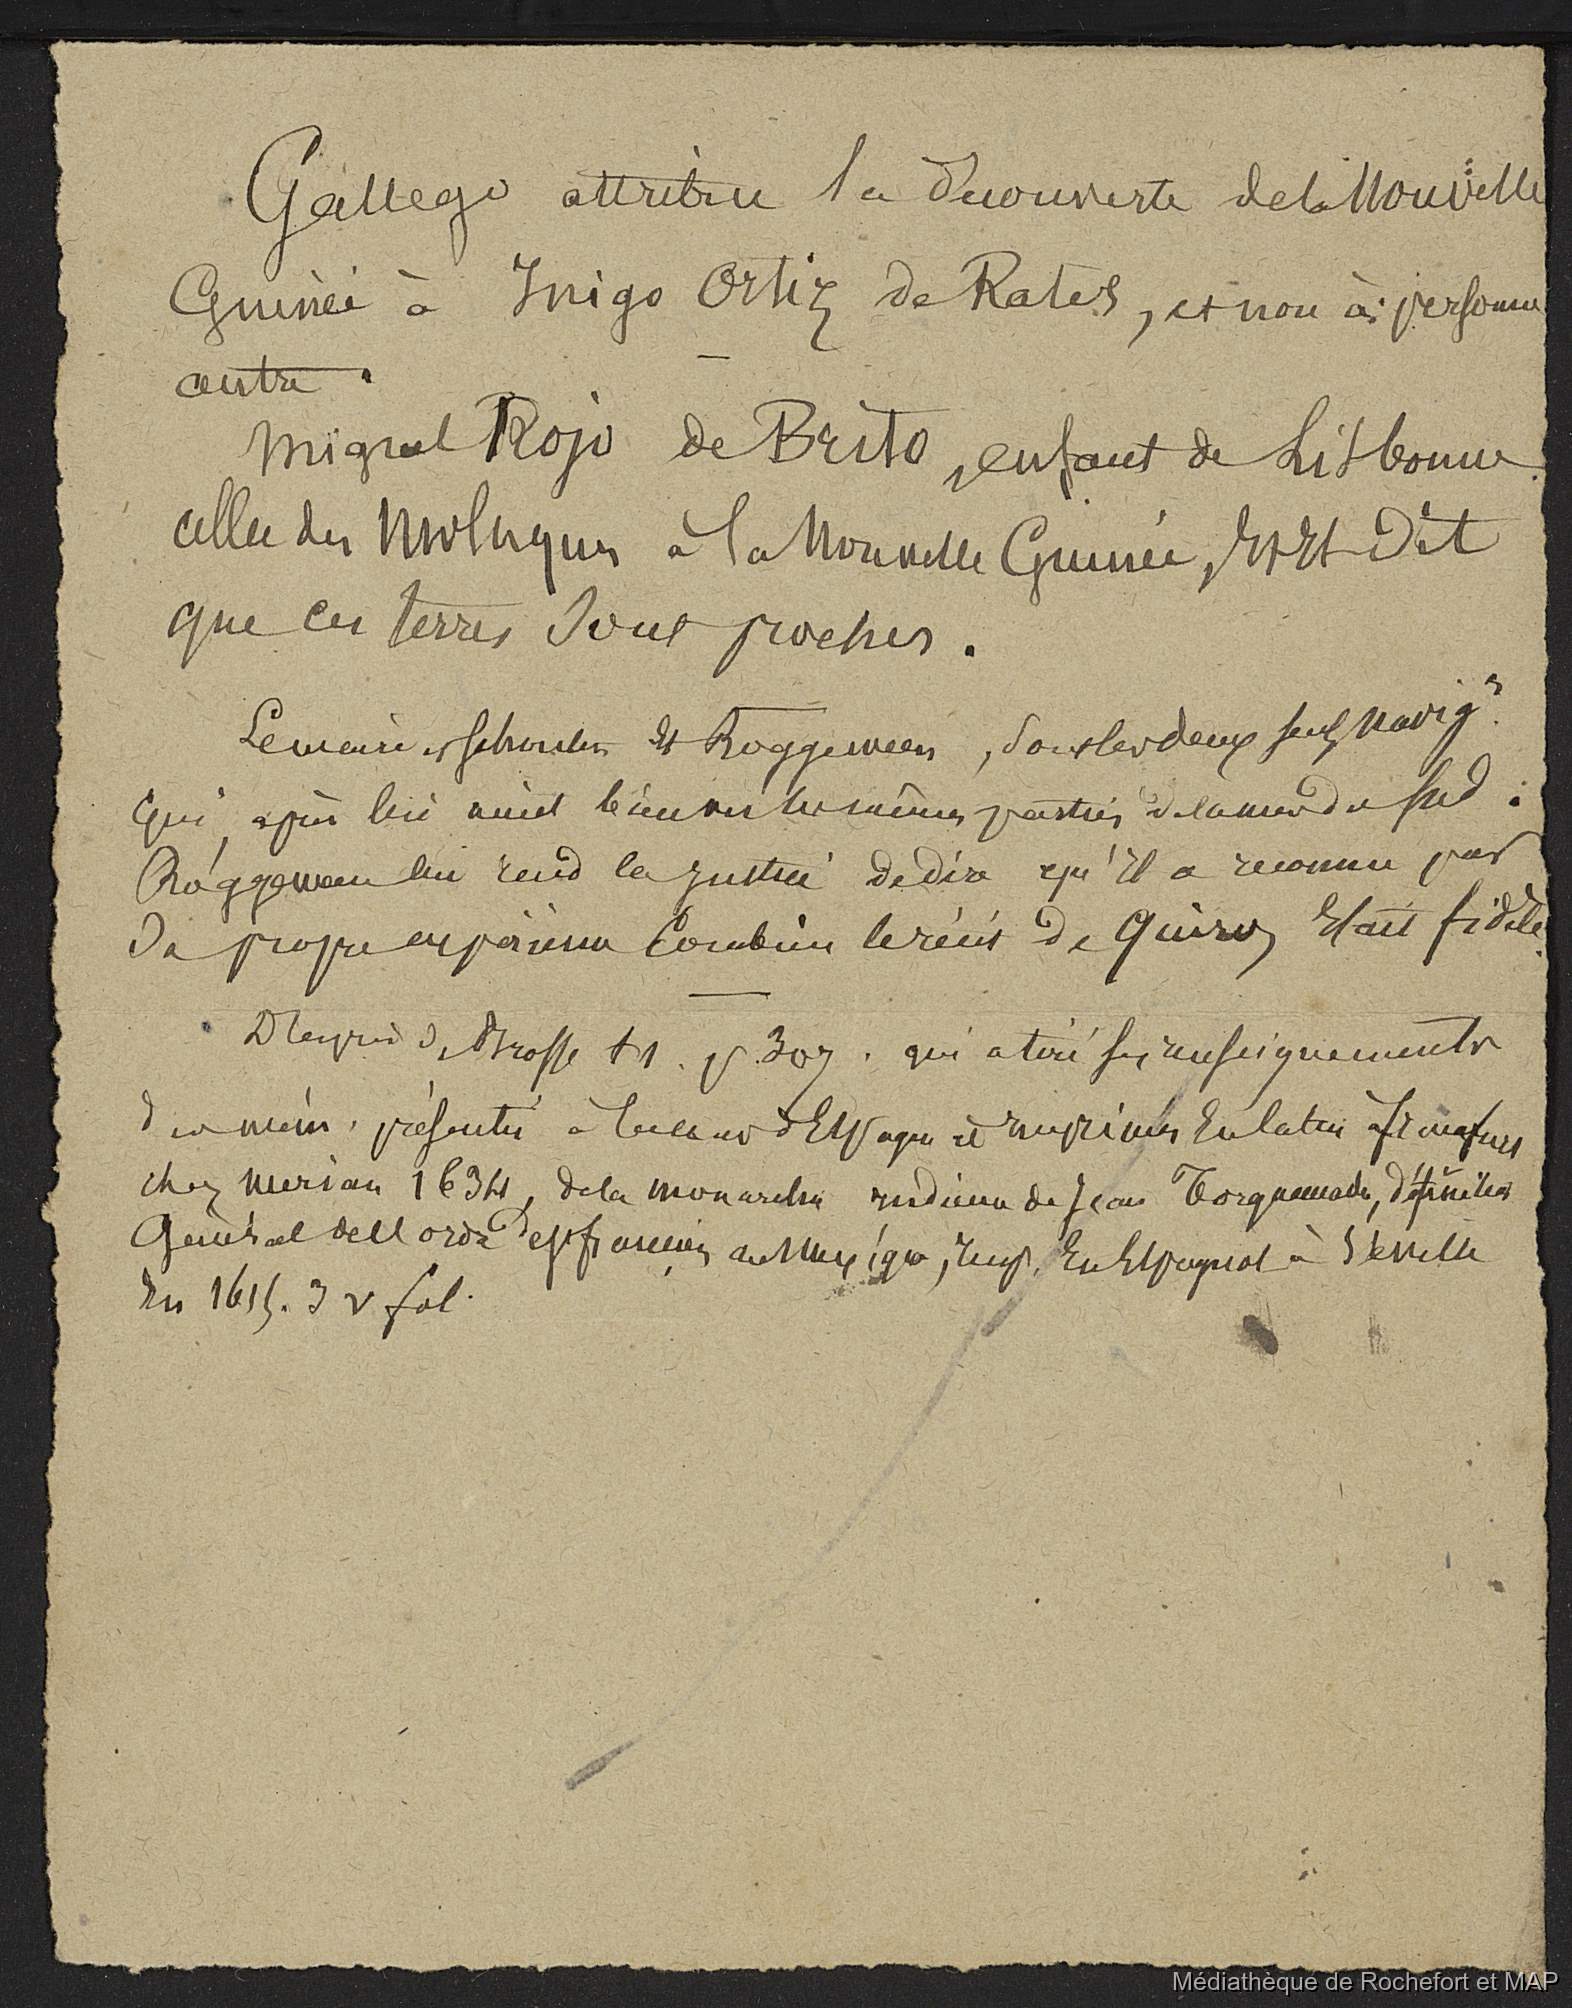 Gallego attribue la découverte de la Nouvelle
Guinée à Inigo Ortiz de Rates, et non à personne
autre.
Miguel Rojo de Brito, enfant de Lisbonne
alla des Moluques à la Nouvelle Guinée, et il dit
que ces terres sont proches.
Lemaire et Schouten et Roggeween, sont les deux seuls navigrs
qui, après lui aient bien vu les mêmes parties de la mer du Sud:
Roggeween lui rend la justice de dire qu'il a reconnu par
sa propre expérience combien le récit de Quiros était fidèle.
D'après de Brosse t 1. p. 307. qui a tiré ses renseignements
du mém. présenté à la cour d'Espagne et imprimé en latin à francfurt
chez Merian 1634, de la monarchie indienne de Jean Torquemada, définiteur
Général de l'ordre des franciscains au Mexique, imp. en Espagnol à Séville
en 1615. 3 v fol.
Médiathèque de Rochefort et MAP